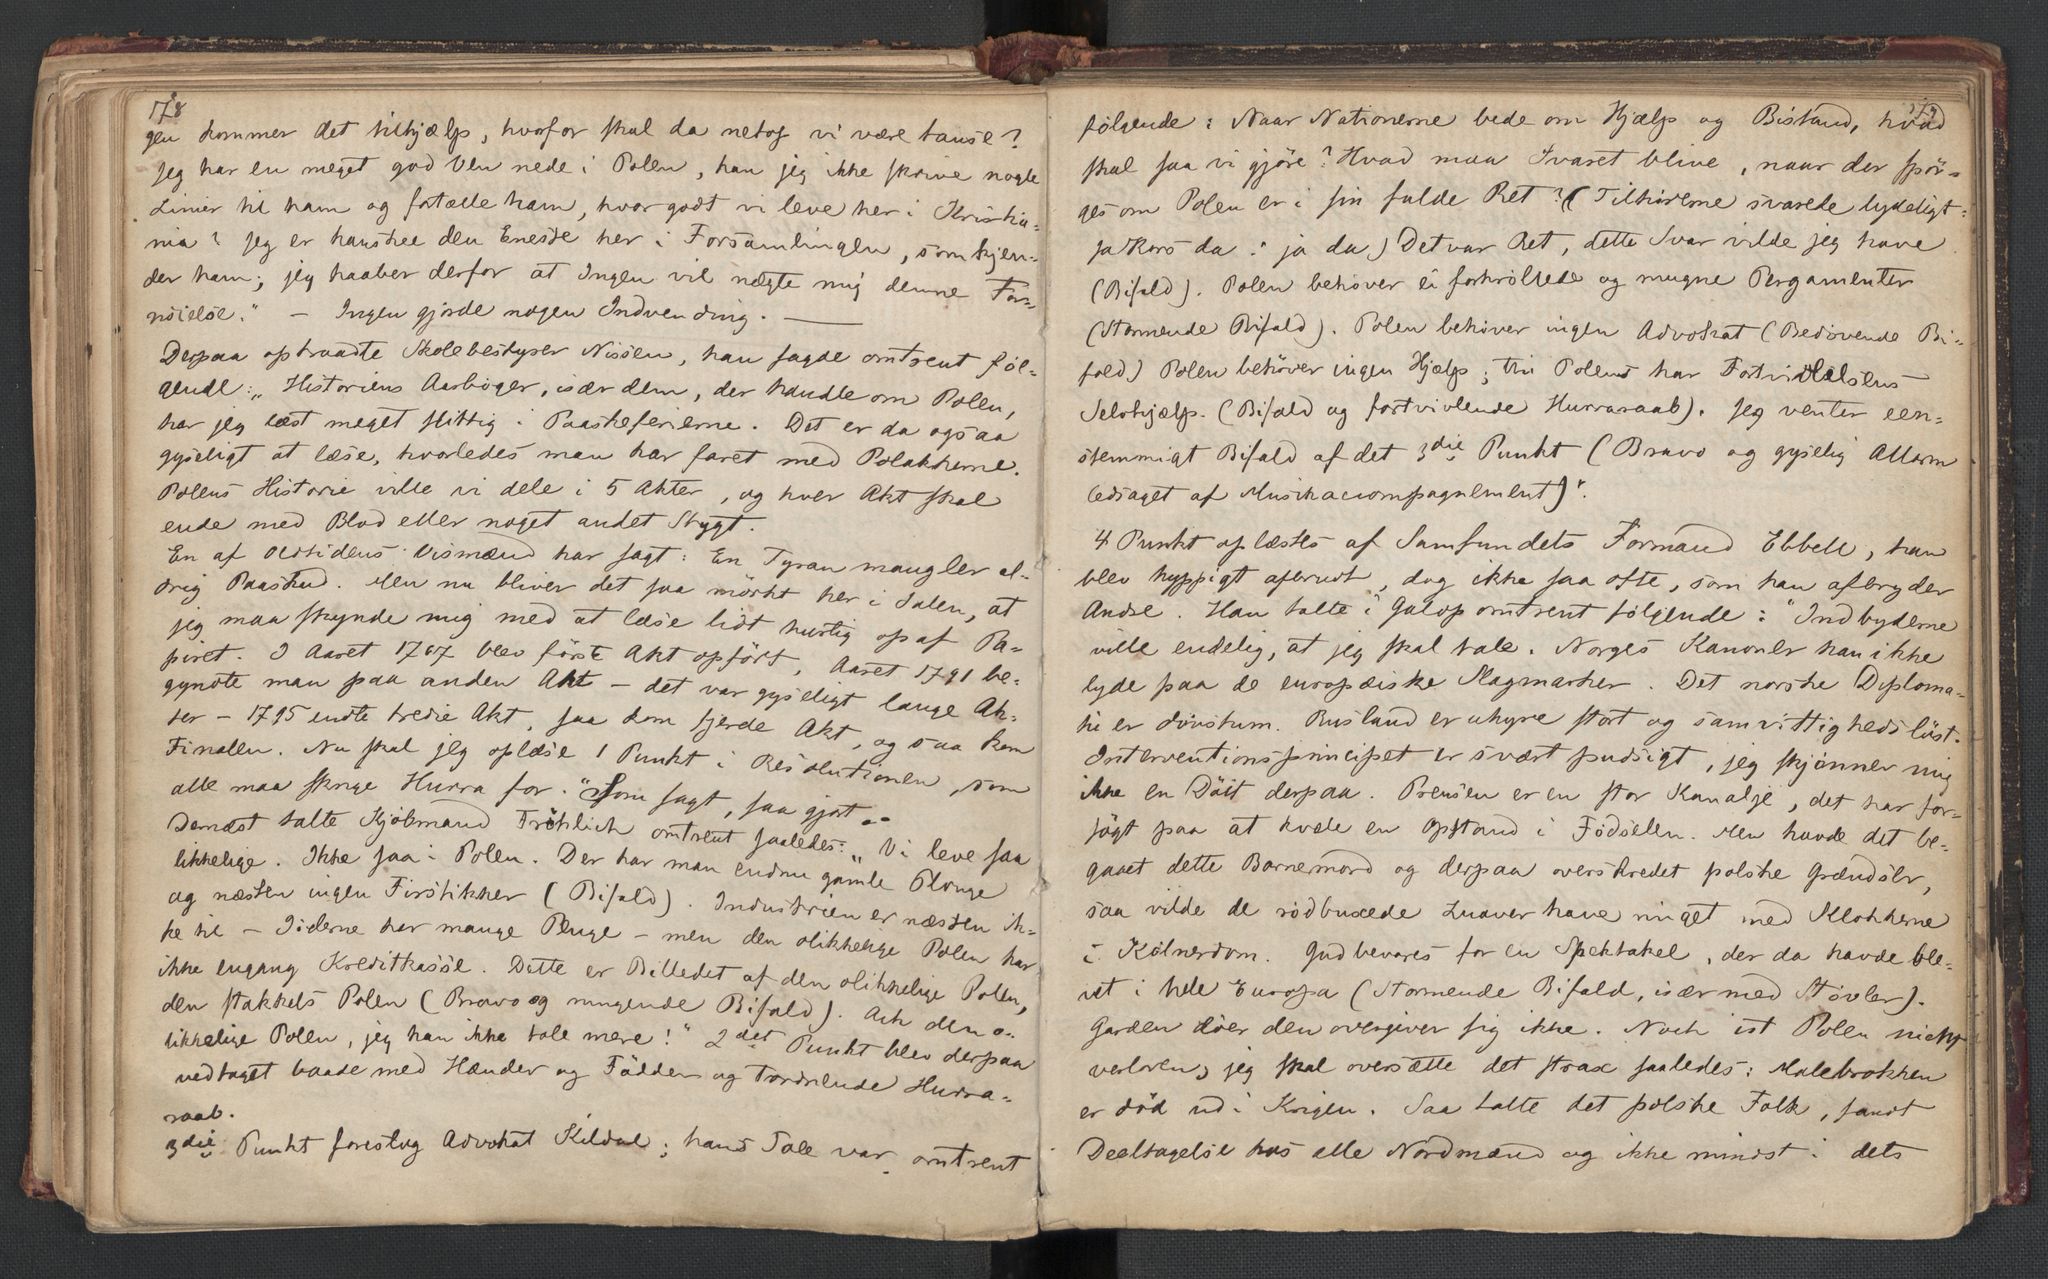 178
gen kommer det tilhjælp, hvorfor skal da netop vi være tause?
Jeg har en meget god Ven nede i Polen, kan jeg ikke skrive nogle
Linier til ham og fortælle ham, hvor godt vi leve her i Kristia-
nia? Jeg er kanskee den Eneste her i Forsamlingen, som kjen-
der ham; jeg haaber derfor at Ingen vil nægte mig denne For-
nöielse." – Ingen gjorde nogen Indvending. —
Derpaa optraadte Skolebestyrer Nissen, han sagde omtrent föl-
gende: „Historiens Aarböger, især dem, der handle om Polen,
har jeg læst meget flittig i Paaskeferierne. Det er da ogsaa
gyseligt at læse, hvorledes man har faret med Polakkerne.
Polens Historie ville vi dele i 5 Akter, og hver Akt skal
ende med Blod eller noget andet Stygt.
En af Oldtidens Vismænd har sagt: En Tyran mangler al-
drig Paaskud. Men nu bliver det saa mörkt her i Salen, at
jeg maa skynde mig med at læse lidt hurtig op af Pa-
piret. I Aaret 1767 blev förste Akt opfört, Aaret 1791 be-
gyndte man paa anden Akt – det var gyseligt lange Ak-
ter – 1795 endte tredie Akt, saa kom fjerde Akt, og saa kom
Finalen. Nu skal jeg oplæse 1 Punkt i Resolutionen, som
alle maa skrige Hurra for." Som sagt, saa gjort..
Dernæst talte Kjöbmand Fröhlich omtrent saaledes: „Vi leve saa
likkelige. Ikke saa i Polen. Der har man endnu gamle Plouge
og næsten ingen Firstikker (Bifald). Industrien er næsten ik-
ke til – Jöderne har mange Penge – men den olikkelige Polen har
ikke engang Kreditkasse. Dette er Billedet af den olikkelige Polen,
den stakkels Polen (Bravo og rungende Bifald). Ack den o-
likkelige Polen, jeg kan ikke tale mere!" 2det Punkt blev derpaa
vedtaget baade med Hænder og Födder og tordnende Hurra-
raab.
3die Punkt foreslog Advokat Kildal; hans Tale var omtrent
179
fölgende: Naar Nationerne bede om Hjælp og Bistand, hvad
skal saa vi gjöre? Hvad maa Svaret blive, naar der spör-
ges om Polen er i sin fulde Ret? (Tilhörerne svarede lydeligt:
ja Kors da: ja da) Det var Ret, dette Svar vilde jeg have
(Bifald). Polen behöver ei forkröllede og mugne Pergamenter
(Stormende Bifald). Polen behöver ingen Advokat (Bedövende Bi-
fald) Polen behöver ingen Hjælp; thi Polens har Fortvivlelsens
Selvhjælp. (Bifald og fortvivlende Hurraraab). Jeg venter een-
stemmigt Bifald af det 3die Punkt (Bravo og gyselig Allarm
ledsaget af Musikaccompagnement)".
4 Punkt oplæstes af Samfundets Formand Ebbell, han
blev hyppigt afbrudt, dog ikke saa ofte, som han afbryder
Andre. Han talte i Galop omtrent fölgende: "Indbyderne
ville endelig, at jeg skal tale. Norges Kanoner kan ikke
lyde paa de europæiske Slagmarker. Det norske Diploma-
ti er dövstum. Rusland er uhyre stort og samvittighedslöst.
Interventionsprincipet er svært pudsigt, jeg skjönner mig
ikke en Döit derpaa. Preusen er en stor Kanalje, det har for-
sögt paa at kvæle en Opstand i Födselen. Men havde det be-
gaaet dette Barnemord og derpaa overskredet polske Grændser,
saa vilde de rödbuxede Zuaver have ringet med Klokkerne
i Kölnerdom. Gud bevares for en Spektakel, der da havde ble-
vet i hele Europa (Stormende Bifald, især med Stövler).
Garden döer den overgiver sig ikke. Noch ist Polen nicht
verloren, jeg skal oversætte det strax saaledes: Malebrokken
er död ud i Krigen. Saa talte det polske Folk, fandt
Deeltagelse hos alle Nordmænd og ikke mindst i dets